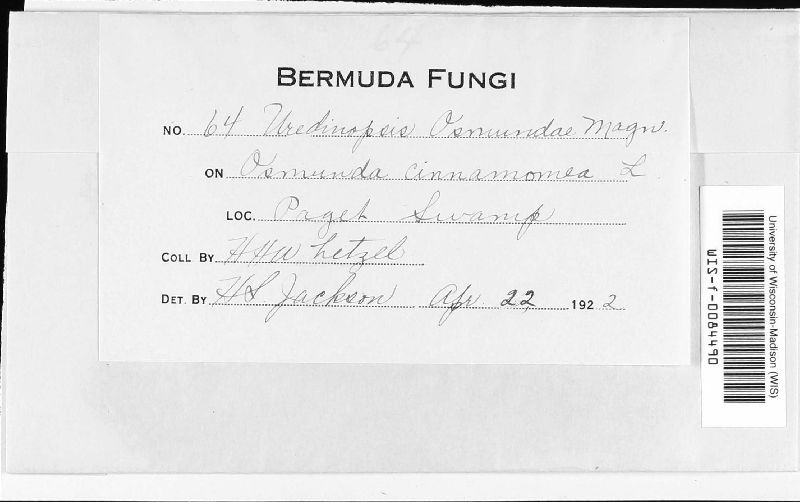 64
BERMUDA FUNGI
NO. 64 Uredinopsis Osmundae Magn.
ON Osmunda cinnamomea L
LOC. Paget Swamp
COLL BY HH Whetzel
DET. BY HS Jackson Apr 22 1922
University of Wisconsin-Madison (WIS)
WIS-f-0084490